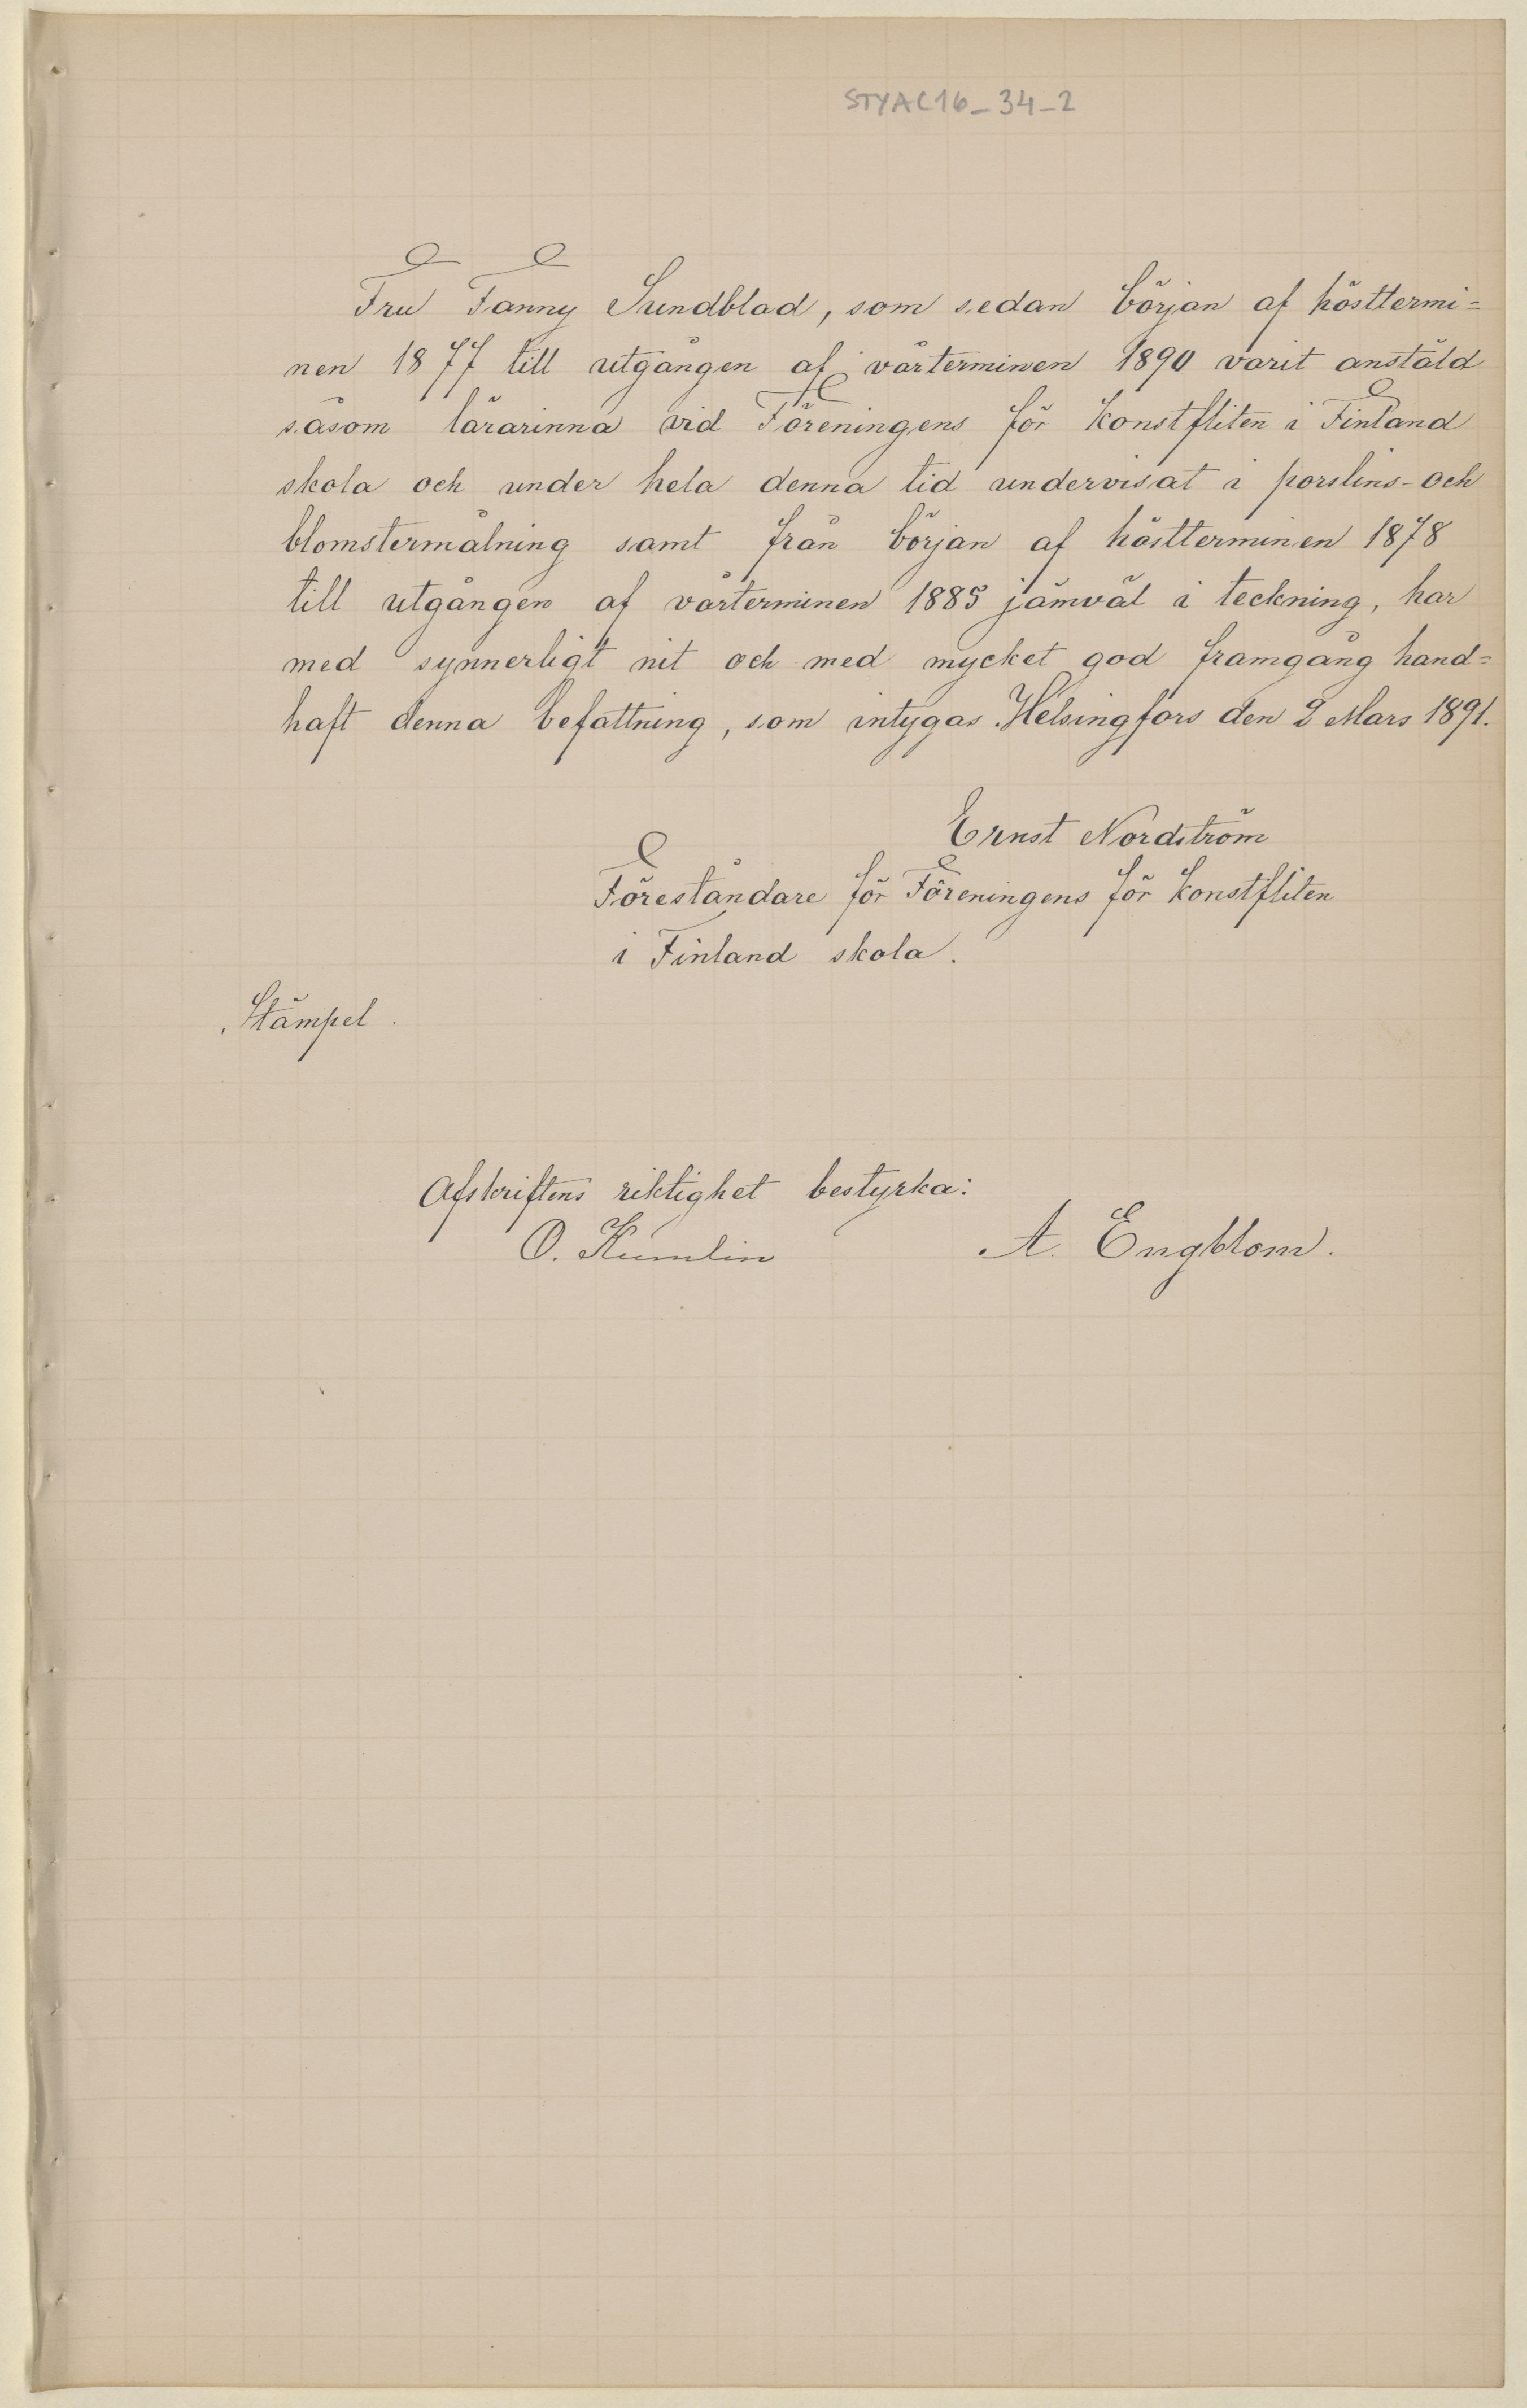 STYAC16_34_2
Fru Fanny Sundblad, som sedan början af hösttermi=
nen 1877 till utgången af vårterminen 1890 varit anstäld
såsom lärarinna vid Föreningens för Konstfliten i Finland
skola och under hela denna tid undervisat i porslins- och
blomstermålning samt från början af höstterminen 1878
till utgången af vårterminen 1885 jämväl i teckning, har
med synnerligt nit och med mycket god framgång hand=
haft denna befattning, som intygas. Helsingfors den 2 Mars 1891.
Ernst Nordström
Föreståndare för Föreningens för Konstfliten
i Finland skola.
Stämpel.
Afskriftens riktighet bestyrka:
O. Kumlin A. Engblom.